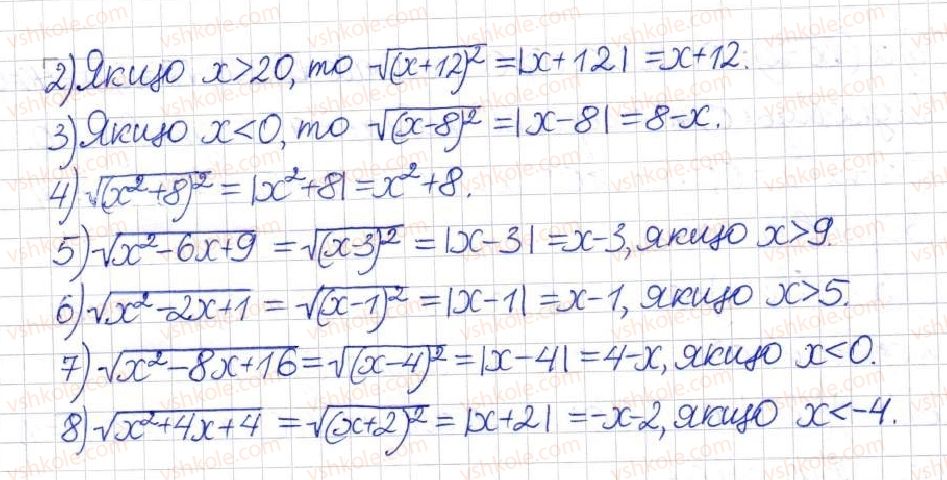 2) Якщо x>20, то √(x+12)² = |x+12| = x+12.
3) Якщо x<0, то √(x-8)² = |x-8| = 8-x.
4) √(x²+8)² = |x²+8| = x²+8.
5) √x²-6x+9 = √(x-3)² = |x-3| = x-3, якщо x>9.
6) √x²-2x+1 = √(x-1)² = |x-1| = x-1, якщо x>5.
7) √x²-8x+16 = √(x-4)² = |x-4| = 4-x, якщо x<0.
8) √x²+4x+4 = √(x+2)² = |x+2| = -x-2, якщо x<-4.